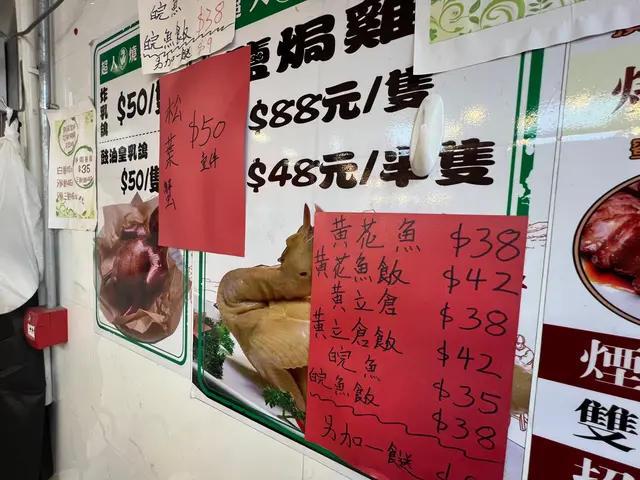 皖魚 $38
皖魚飯 $38
另加一餸 $9
超人燒
炸乳鴿 $50/隻
豉油皇乳鴿 $50/隻
鹽焗雞
$88元/隻
$48元/半隻
松葉蟹 $50
$35
黃花魚 $38
黃花魚飯 $42
黃立倉 $38
黃立倉飯 $42
皖魚 $35
皖魚飯 $38
另加一餸
煙
雙